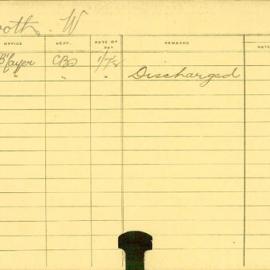 ooth, W
OFFICE DEPT. RATE OF PAY REMARKS DATE
B'layer CBS 1/7½
" " " Discharged